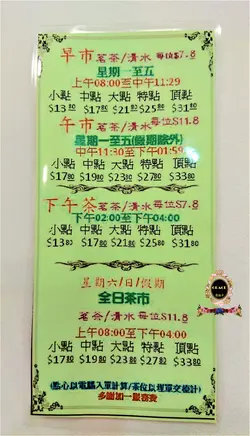 早市 茗茶/清水 每位$7.8
星期一至五
上午08:00至中午11:29
小點 中點 大點 特點 頂點
$13 80 $17 80 $21 80 $25 80 $31 80
午市 茗茶/清水 每位$11.8
星期一至五(假期除外)
中午11:30至下午01:59
小點 中點 大點 特點 頂點
$17 80 $19 80 $23 80 $27 80 $33 80
下午茶 茗茶/清水 每位$7.8
下午02:00至下午04:00
小點 中點 大點 特點 頂點
$13 80 $17 80 $21 80 $25 80 $31 80
星期六/日/假期
全日茶市
茗茶/清水 每位$11.8
上午08:00至下午04:00
小點 中點 大點 特點 頂點
$17 80 $19 80 $23 80 $27 80 $33 80
(點心以電腦入單計算/茶位以埋單交檯計)
多謝加一服務費